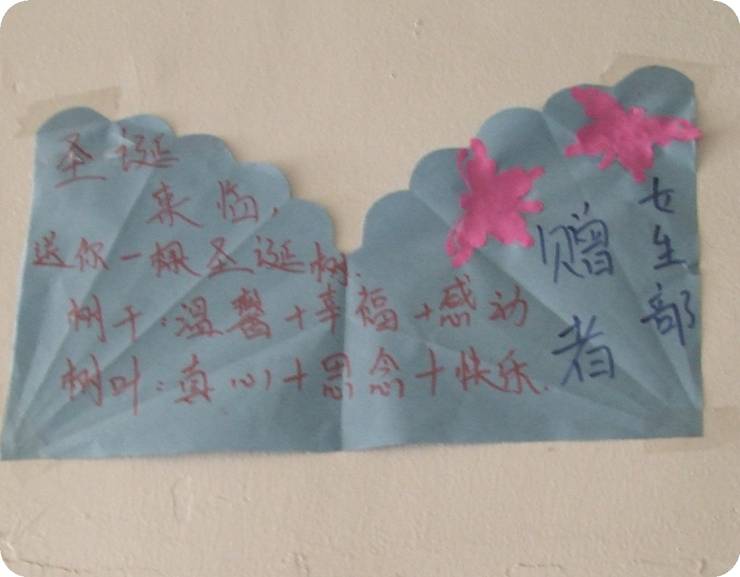 圣诞
来临,
送你一棵圣诞树.
树干:温馨+幸福+感动
树叶:真心+思念+快乐.
赠者
女生部